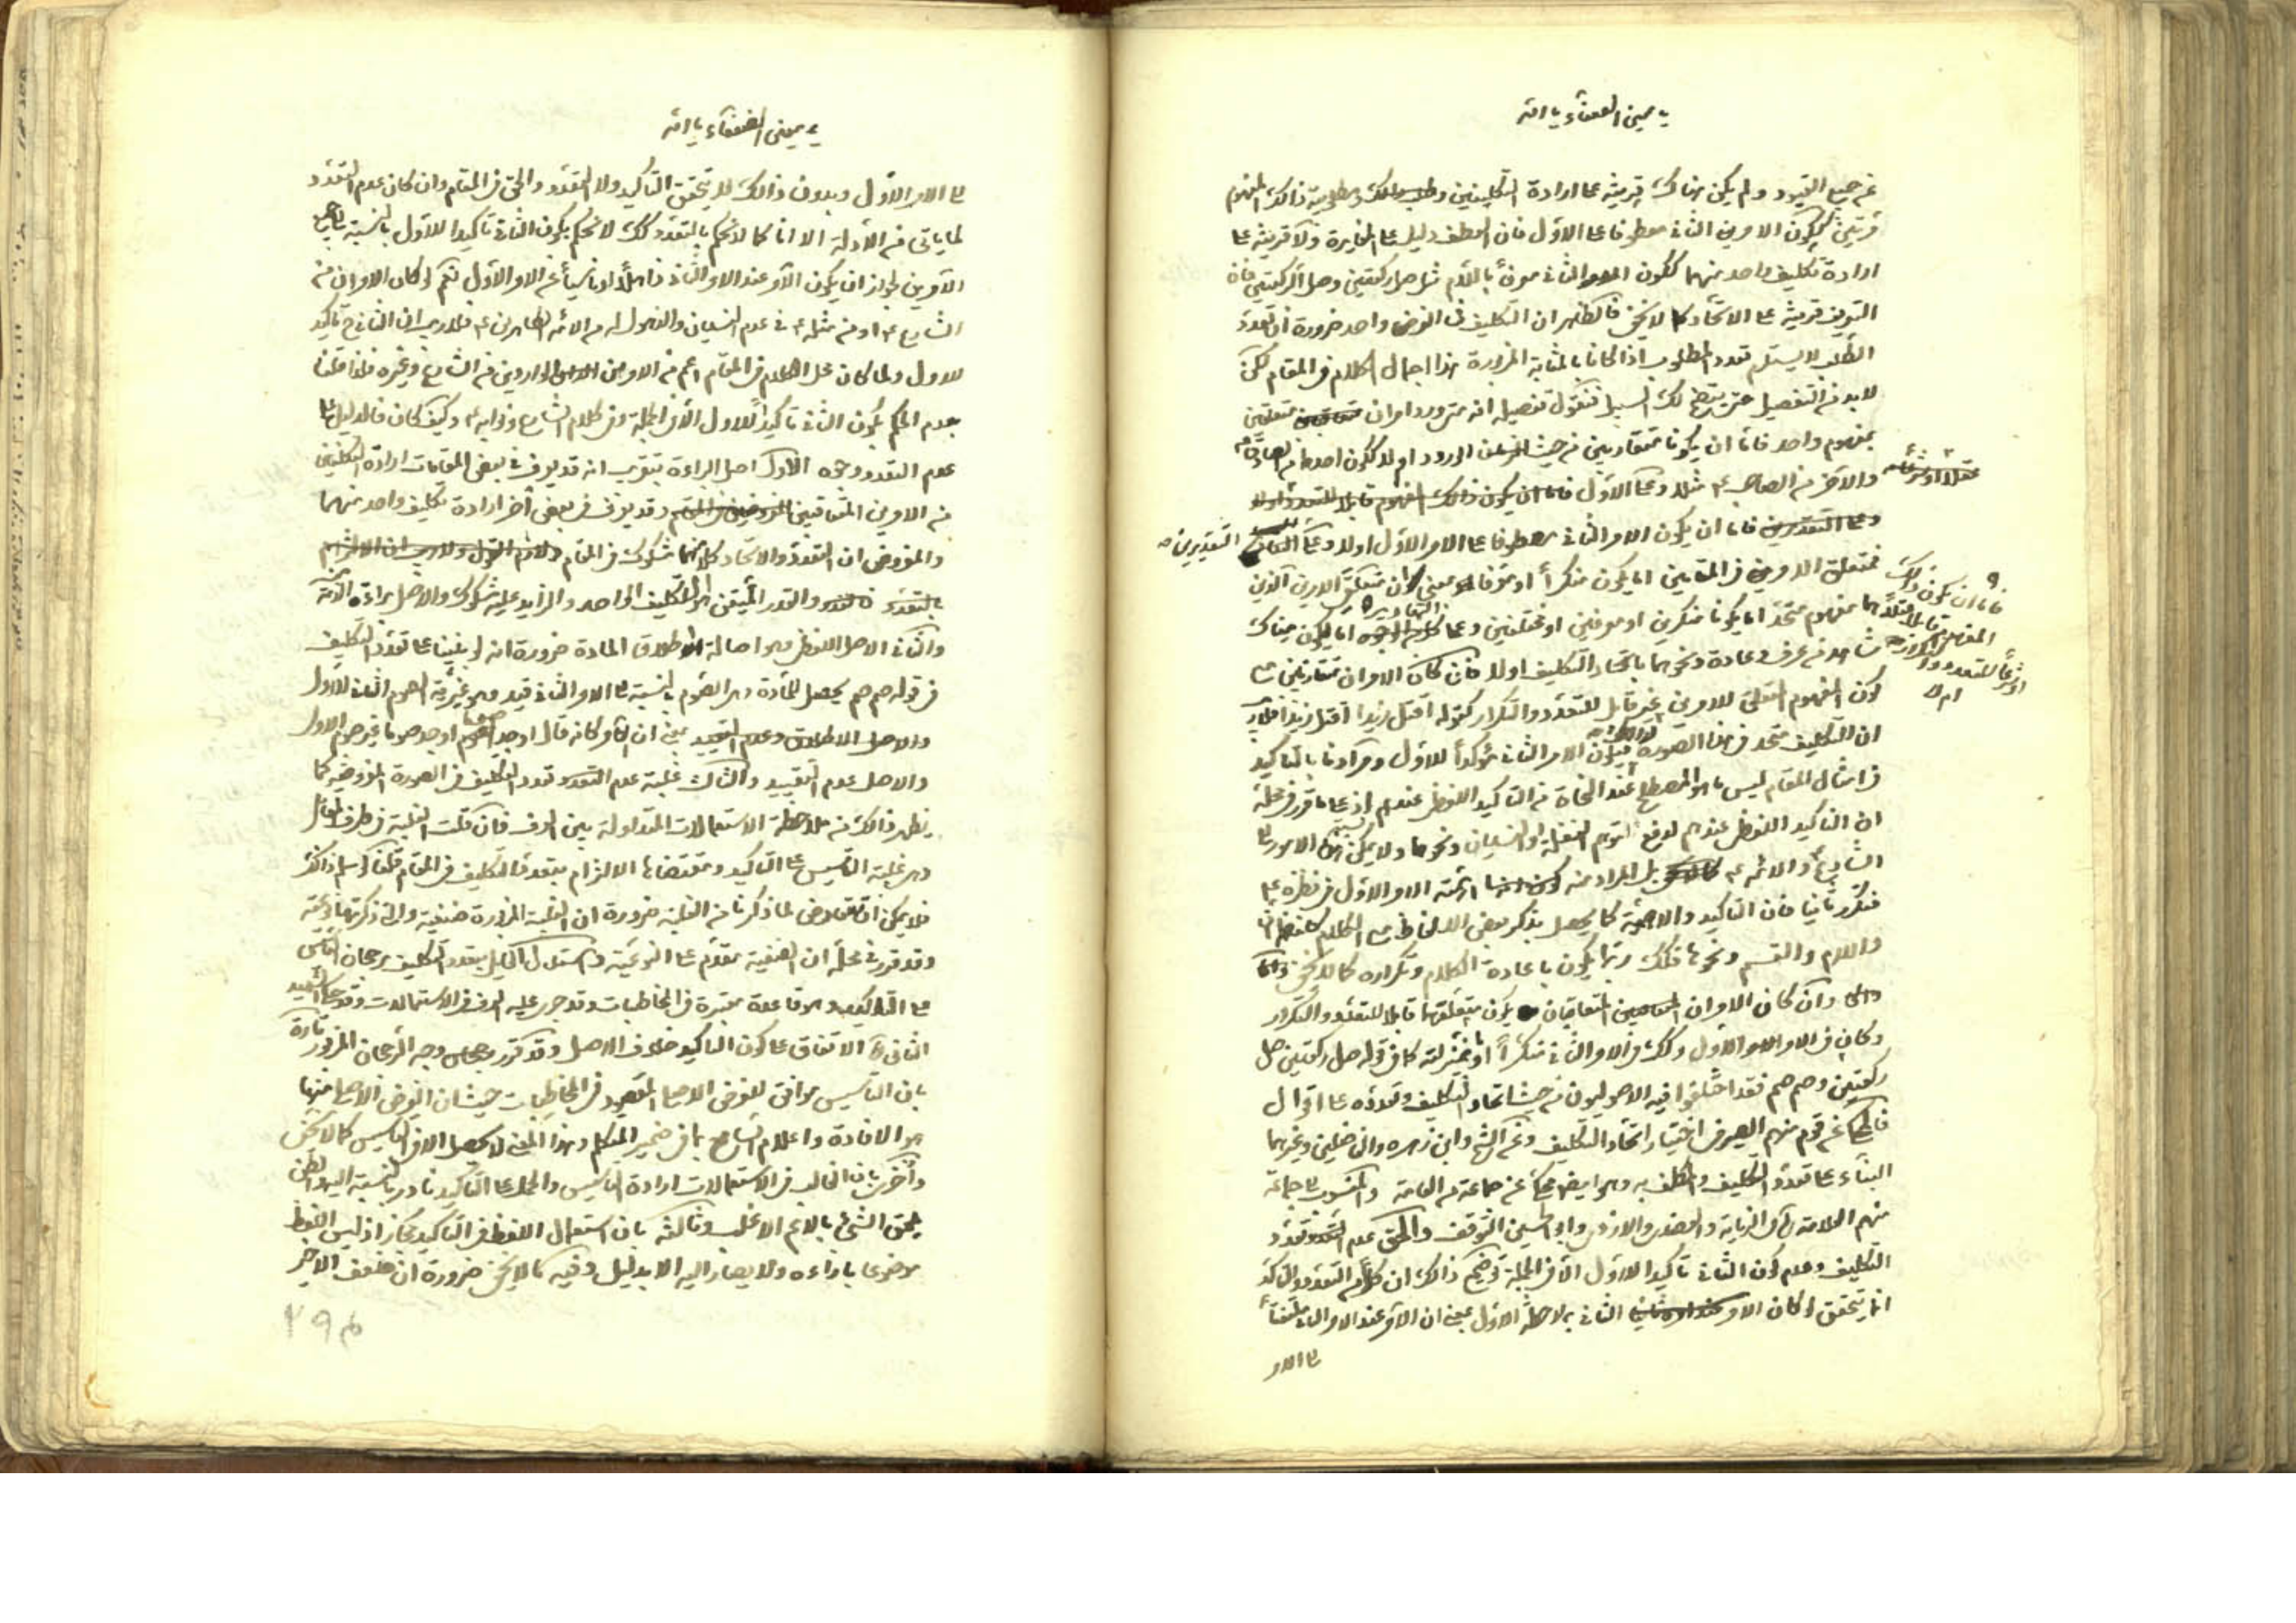 يا معين الضعفاء يا الله
عن جميع القيود ولم يكن هناك قرينة على ارادة التكليفين ومطلوبية ذلك المفهوم
مرتين ككون الامر الثانى معطوفا على الاول فان العطف دليل على المغايرة ولا قرينة على
ارادة تكليف واحد منهما ككون الثانى معرفا باللام مثل صل ركعتين وصل الركعتين فان
التعريف قرينة على الاتحاد كما لا يخفى فالظاهر ان التكليف فى الفرض واحد ضرورة ان تعدد
الطلب لا يستلزم تعدد المطلوب اذا كانا بالمثابة المزبورة هذا اجمال الكلام فى المقام لكن
لا بد من التفصيل حتى يتضح لك السبيل فنقول تفصيله انه متى ورد امران متعلقين
بمفهوم واحد فاما ان يكونا متقاربين من حيث الورود او لا ككون احدهما من الصادق ع
والاخر من الصاحب ع مثلا وعلى الاول
فاما ان يكون الامر الثانى معطوفا على الامر الاول اولا وعلى التقديرين
فاما ان يكون ذلك المفهوم قابلا عقلا او شرعا للتعدد والتكرار ام لا
فمتعلق الامرين فى المقامين اما يكون منكرا او معرفا بمعنى ان متعلق الامرين الذين
هما مفهوم متحد اما يكونا منكرين او معرفين او مختلفين وعلى التقادير اما يكون هناك
شاهد من عرف وعادة ونحوهما باتحاد التكليف اولا فان كان الامران متقاربين مع
كون المفهوم المتعلق للامرين غير قابل للتعدد والتكرار كقوله اقتل زيدا اقتل زيدا فلا ريب
ان التكليف متحد فى هذا الصورة فيكون الامر الثانى مؤكدا للاول ومرادنا بالتاكيد
فى امثال المقام ليس ما هو المصطلح عند النحاة من التاكيد اللفظى عندهم اذ على ما قرر فى محله
ان التاكيد اللفظى عندهم لدفع توهم الغفلة او النسيان ونحوهما ولا يمكن نسبة هذه الامور الى
الشارع والائمه ع بل المراد منه اهمية الامر الاول فى نظره ع
فتكرر ثانيا فان التاكيد والاهمية كما يحصل بذكر بعض الالفاظ مع الكلام كلفظ ان
واللام والقسم ونحوها فكذلك ربما يكون باعادة الكلام وتكراره كما لا يخفى
وان كان الامران المتعاقبان يكون متعلقهما قابلا للتعدد والتكرار
وكان فى الامر الاول وكذلك فى الامر الثانى منكرا او بمنزلته كما فى قوله صل ركعتين صل
ركعتين وصم صم فقد اختلفوا فيه الاصوليون من حيث اتحاد التكليف وتعدده على اقوال
فالمحكى عن قوم منهم الصيرفى اختيار اتحاد التكليف وعن الشيخ وابن زهره والفاضلين وغيرهما
البناء على تعدد التكليف والمكلف به وهو ايضا محكى عن جماعة من العامة والمنسوب الى جماعة
منهم العلامة فى النهاية والعضدى والازدى وابو الحسين التوقف والحق عدم تعدد
التكليف وعدم كون الثانى تاكيدا للاول الا فى الجملة توضيح ذلك ان كلا من التعدد والتاكيد
انما يتحقق لو كان الامر الثانى بملاحظة الاول بمعنى ان الآمر عند الامر الثانى ملتفتا
الى الامر
يا معين الضعفاء يا الله
الى الامر الاول وبدون ذلك لا يتحقق التاكيد ولا التعدد والحق فى المقام وان كان عدم التعدد
لما ياتى من الادلة الا انا كما لا نحكم بالتعدد كذلك لا نحكم بكون الثانى تاكيدا للاول بالنسبة الى جميع
الآمرين لجواز ان يكون الآمر عند الامر الثانى ذاهلا او ناسيا عن الامر الاول نعم لو كان الامران من
الشارع ع او من مثله ع فى عدم النسيان والذهول له من الائمة الطاهرين ع فلا ريب ان الثانى ح تاكيد
للاول ولما كان محل الكلام فى المقام اعم من الامرين الواردين من الشارع وغيره فلذا قلنا
بعدم الحكم بكون الثانى تاكيدا للاول الا فى الجملة وفى كلام الشارع ونوابه ع وكيف كان فالدليل على
عدم التعدد وجوه الاول اصل البراءة بتقريب انه قد يعرف فى بعض المقامات ارادة التكليفين
من الامرين المتعاقبين وقد يعرف فى بعض أخر ارادة تكليف واحد منهما
والمفروض ان التعدد والاتحاد كلاهما مشكوك فى المقام
والقدر المتيقن هو التكليف الواحد والزايد عليه مشكوك والاصل براءة الذمة
والثانى الاصل اللفظى وهو اصالة اطلاق المادة ضرورة انه لو بنينا على تعدد التكليف
فى قوله صم صم يحصل للمادة وهو الصوم بالنسبة الى الامر الثانى قيد وهو غيرية الصوم الثانى للاول
والاصل عدم التقييد والثالث غلبة عدم تعدد التكليف فى الصورة المفروضه كما
يظهر ذلك من ملاحظة الاستعمالات المتداولة بين العرف فان قلت الغلبة فى طرف المقابل
وهى غلبة التاسيس على التاكيد ومقتضاها الالتزام بتعدد التكليف فى المقام قلنا لو سلم ذلك
فلا يمكن ان تعارض لما ذكرنا من الغلبة ضرورة ان الغلبة المزبورة صنفية والتى ذكرتها نوعية
وقد قرر فى محله ان الصنفية مقدم على النوعية واستدل القائل بتعدد التكليف برجحان التاسيس
على التاكيد وهو قاعدة معتبرة فى المخاطبات وقد جرى عليه العرف فى الاستعمالات وقد حكى الشهيد
الثانى ره الاتفاق على كون التاكيد خلاف الاصل وقد تكرر وجه الرجحان المزبور تارة
بان التاسيس موافق للغرض الاصلى المقصود فى المخاطبات حيث ان الغرض الاصلى منها
هو الافادة واعلام السامع بما فى ضمير المتكلم وهذا المعنى لا يحصل الا فى التاسيس كما لا يخفى
واخرى بان الغالب فى الاستعمالات ارادة التاسيس والحمل على التاكيد نادر بالنسبة اليه والظن
يلحق الشئ بالاعم الاغلب وثالثه بان استعمال اللفظ فى التاكيد مجاز اذ ليس اللفظ
موضوعا بازاءه ولا يصار اليه الا بدليل وفيه كما لا يخفى ضرورة ان ضعف الاخير